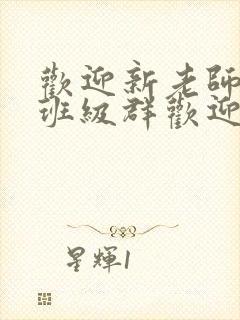 歡迎新老師
班級群歡迎
星輝1